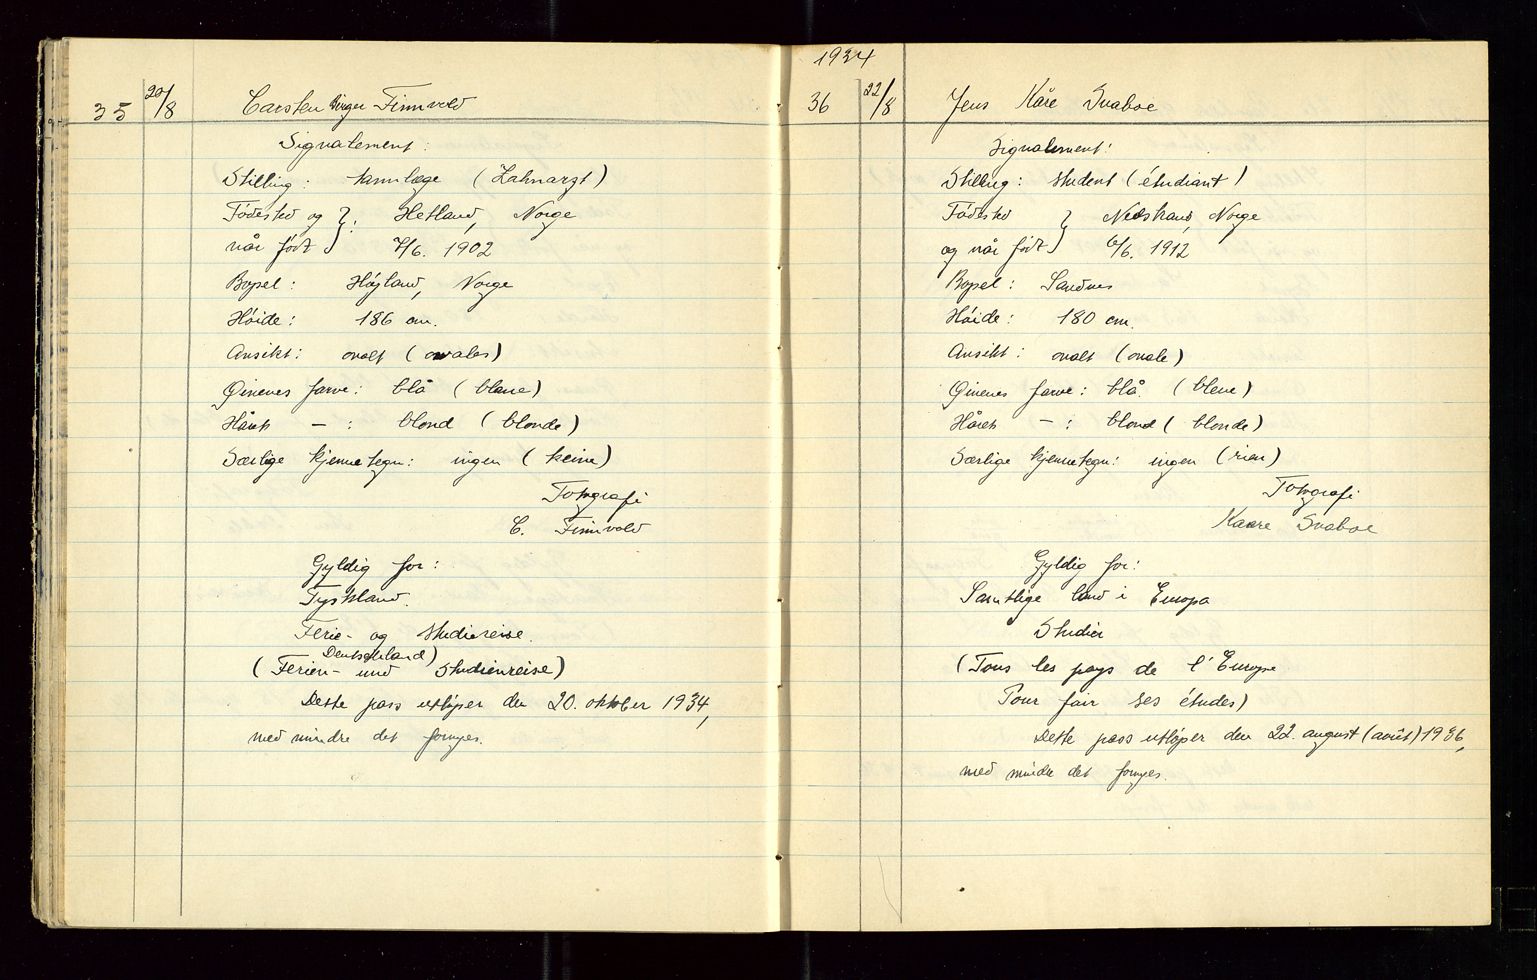 35 20/8 Carsten Birger Finnvold
Signalement:
Stilling: tannlæge (Zahnarzt)
Fødested og } : Hetland, Norge
når født } 7/6. 1902
Bopel: Høyland, Norge
Høide: 186 cm.
Ansikt: ovalt (ovales)
Øinenes farve: blå (blaue)
Håret — : blond (blonde)
Særlige kjennetegn: ingen (keine)
Fotografi
C. Finnvold
Gyldig for:
Tyskland.
Ferie- og studiereise.
Deutschland)
(Ferien- und Studienreise)
Dette pass utløper den 20. oktober 1934,
med mindre det fornyes.
1934
36 22/8 Jens Kåre Svaboe
Signalement:
Stilling: student (étudiant)
Fødested } Nedstrand, Norge
og når født } 6/6. 1912
Bopel: Sandnes
Høide: 180 cm.
Ansikt: ovalt (ovale)
Øinenes farve: blå. (bleue)
Håret — : blond (blonde)
Særlige kjennetegn: ingen (rien)
Fotografi
Kaare Svaboe
Gyldig for:
Samtlige land i Europa
Studier
(Tous les pays de l'Europe
Pour fair ses études)
Dette pass utløper den 22. august (août) 1936,
med mindre det fornyes.